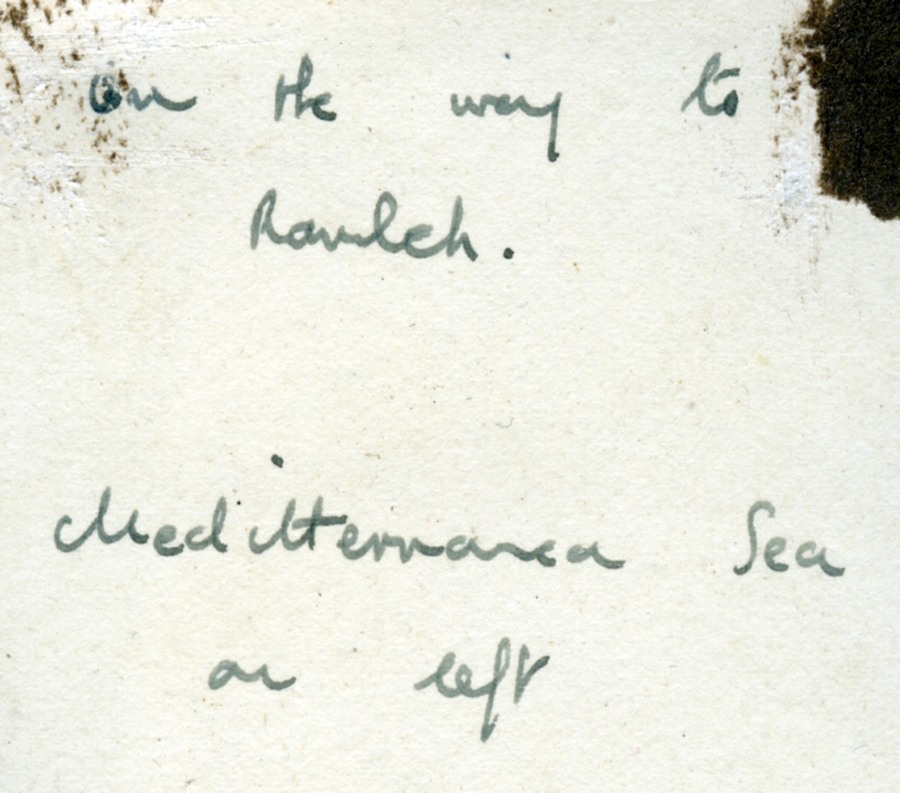 On the way to
Ramleh.
Meditternanea Sea
on left